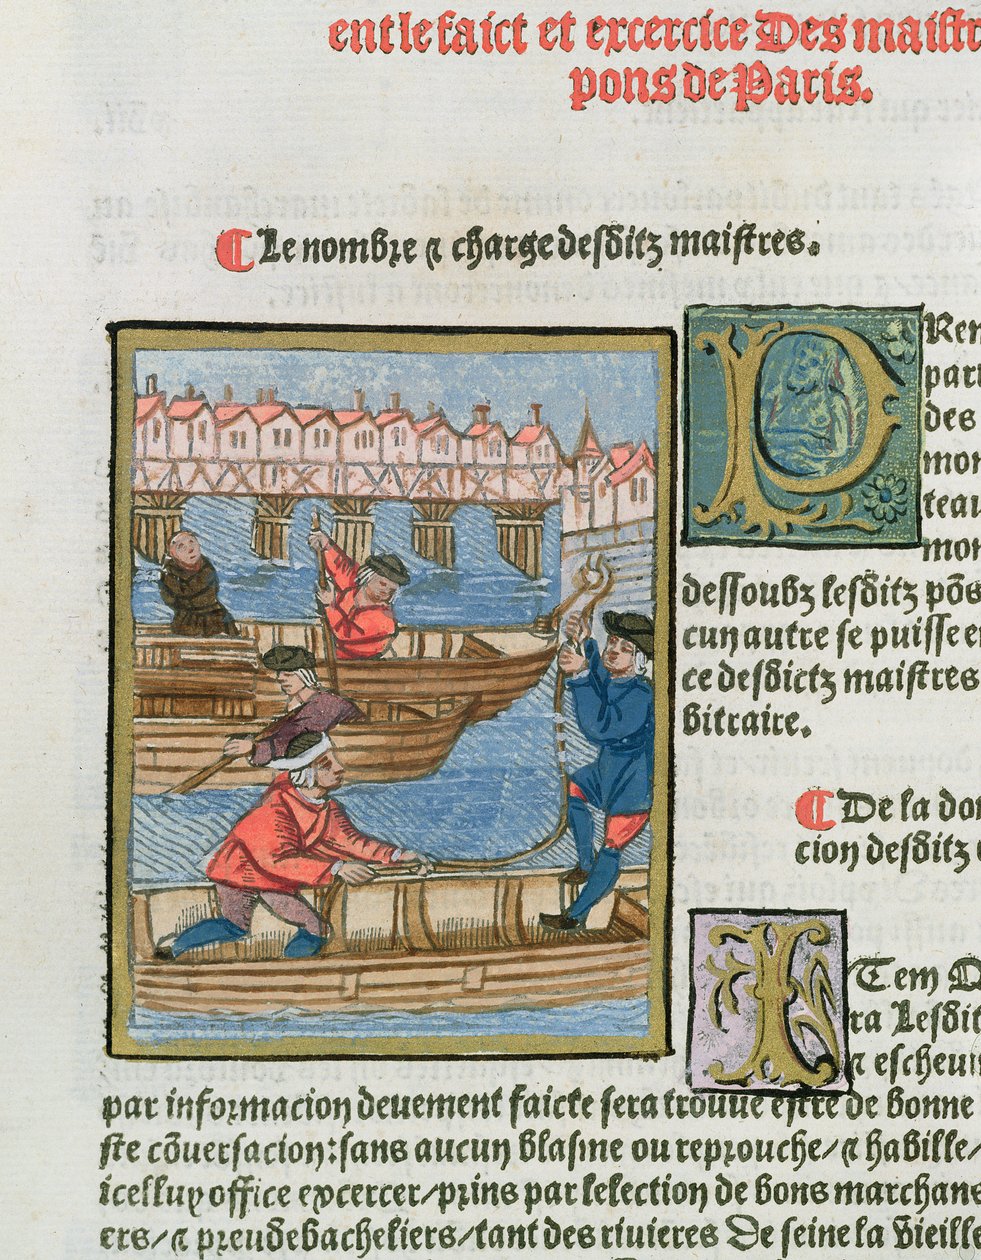 ent le faict et excercice Des maistr
pons de Paris.
¶ Le nombre ⁊ charge desditz maistres.
PRen
part
des
mon
teau
mon
dessoubz lesditz põs
cun autre se puisse e
ce desdictz maistres
bitraire.
¶ De la don
cion desditz
ITem
ra Lesdit
⁊ escheui
par informacion deuement faicte sera trouue estre de bonne
ste cõuersacion: sans aucun blasme ou reprouche/ ⁊ habille/
icelluy office excercer/ prins par lelection de bons marchans
ers/ ⁊ preudebacheliers/ tant des riuieres De seine la vieille